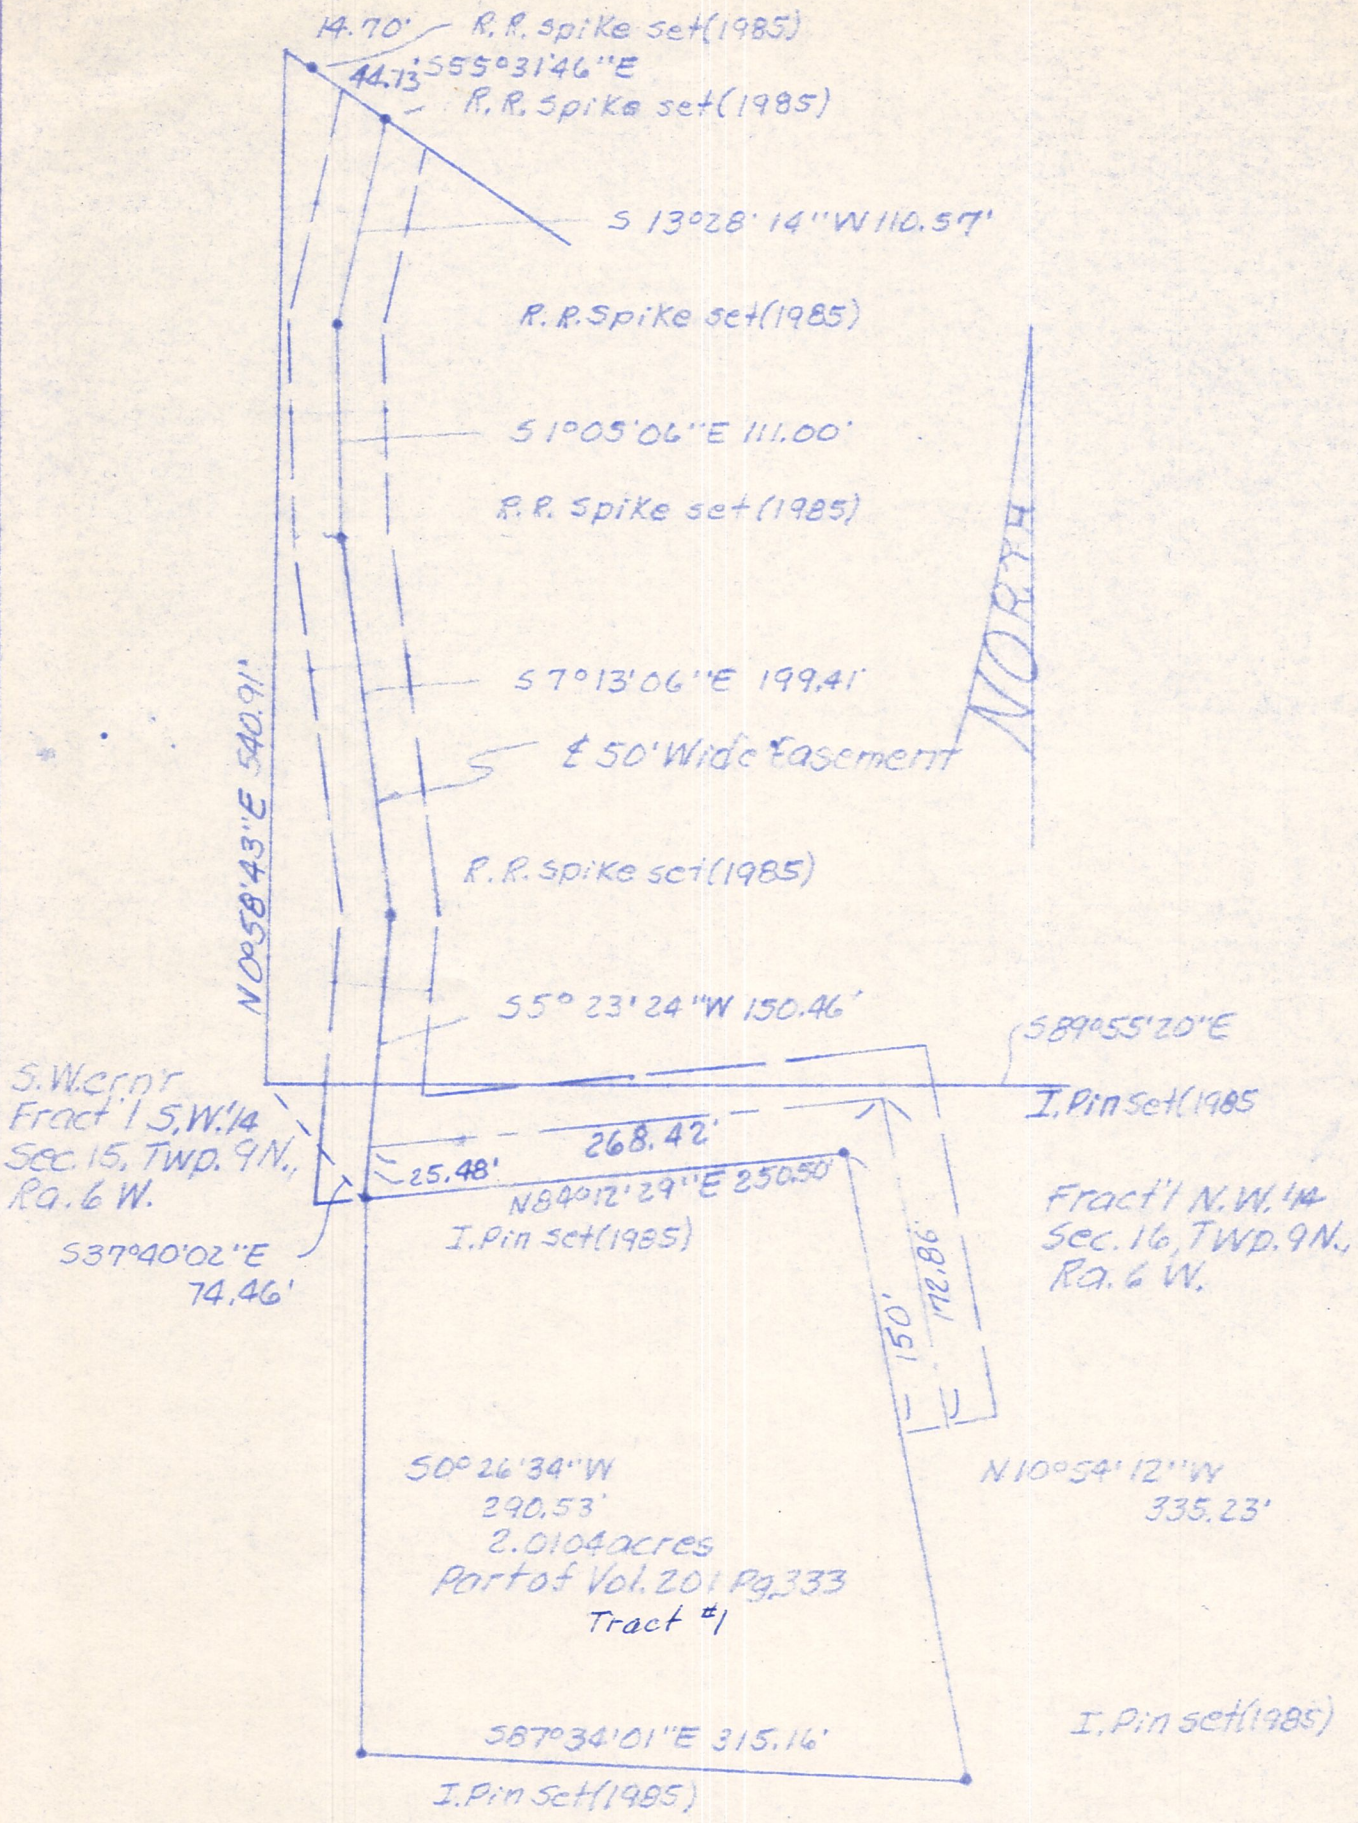 14.70'
R.R. Spike set(1985)
44.13' S55°31'46"E
R.R. Spike set(1985)
S 13°28'14"W 110.57'
R.R. Spike set(1985)
S 1°05'06"E 111.00'
R.R. Spike set(1985)
NORTH
S 7°13'06"E 199.41'
N0°58'43"E 540.91'
℄ 50' Wide Easement
R.R. Spike set(1985)
S5°23'24"W 150.46'
S89°55'20"E
S.W.crn'r
Fract'l S.W.1/4
Sec.15, Twp.9N.,
Ra.6 W.
I.Pin Set(1985
268.42'
25.48'
N84°12'29"E 250.50'
I.Pin set(1985)
S37°40'02"E
74.46'
Fract'l N.W.1/4
Sec.16, Twp.9N.,
Ra.6 W.
150'
172.86'
S0°26'34"W
290.53'
2.0104acres
Part of Vol.201 Pg.333
Tract #1
N10°54'12"W
335.23'
S87°34'01"E 315.16'
I.Pin set(1985)
I.Pin Set(1985)